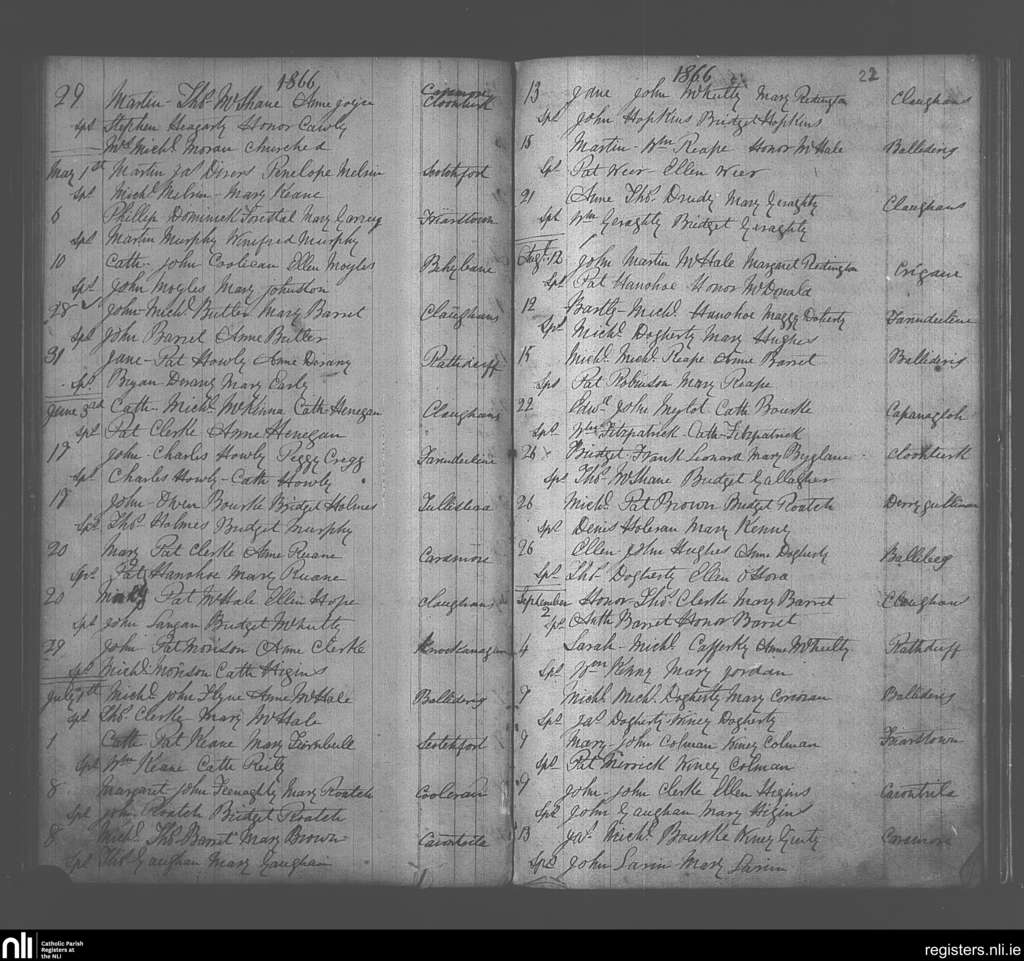 1866
29 Martin - Thos McShane Anne Joyce Carrmore Cloonturk
Spl Stephen Heagarty Honor Cawly
Mrs Michl Moran Churched
May 1st Martin Jas Divers Penelope Melvin Scotchfort
Spl Michl Melvin - Mary Keane
6 Phillip Dominick Mary Friarstown
Spl Martin Murphy Winifred Murphy
10 Cath - John Coolican Ellen Moyles Behybane
Spl John Moyles Mary Johnston
28 John Michl Butler Mary Barret Claughans
Spl John Barret Anne Butler
31 Jane - Pat Howly Anne Dorany Rathduff
Spl Bryan Dorany Mary Early
June 3rd Cath - Michl McKinna Cath Henegan Claughans
Spl Pat Clerke Anne Henegan
17 John - Charles Howly Peggy Gregg Farrudertine
Spl Charles Howly - Cath Howly
17 John - Owen Bourke Bridget Holmes Tullisleva
Spl Thos Holmes Bridget Murphy
20 Mary Pat Clerke Anne Ruane Caramore
Spl Pat Hanohoe Mary Ruane
20 Mary Pat McHale Ellen Hope Claughans
Spl John Langan Bridget McNulty
29 John - Pat Morison Anne Clerke
Spl Michl Morison Cath Higins
July 1st Michl John Flyne Anne McHale Ballideris
Spl Thos Clerke Mary McHale
1 Cath - Pat Keane Mary Turnbull Scotchfort
Spl Wm Keane Cath
8 Margaret John Feenaghty Mary Roatch Cooleran
Spl John Roatch Bridget Roatch
8 Michl Thos Barret Mary Brown
Spl Thos Gaughan Mary Gaughan
1866 22
13 Jane John McNulty Mary Redington Claughans
Spl John Hopkins Bridget Hopkins
15 Martin - Wm Reape Honor McHale Ballideris
Spl Pat Weir - Ellen Weir
21 Anne Thos Druidy Mary Geraghty Claughans
Spl Wm Geraghty Bridget Geraghty
Augt 12 John Martin McHale Margaret Redington Crigane
Spl Pat Hanohoe Honor McDonald
12 Bartly - Michl Hanohoe Maggy Doherty Farrudertine
Spl Michl Dogherty Mary Hughes
15 Michl Michl Reape Anne Barret Ballideris
Spl Pat Robinson Mary Reape
22 Edwd John Mylot Cath Bourke Capanagloh
Spl Wm Fitzpatrick - Cath - Fitzpatrick
26 Bridget - Frank Leonard Mary Byglane Cloonturk
Spl Thos McShane Bridget Gallagher
26 Michl Pat Brown Bridget Roatch
Spl Denis Holeran Mary Kenny
26 Ellen - John Hughes Anne Dogherty Ballebeg
Spl Thos Dogherty Ellen O'Hora
September Honor - Thos Clerke Mary Barret Claughan
2 Spl Anth Barret Honor Barret
4 Sarah - Michl Cafferky Anne McNulty Rathduff
Spl Wm Kenny Mary Jordan
7 Michl Michl Dogherty Mary Corcoran Ballideris
Spl Jas Dogherty Winey Dogherty
9 Mary - John Colman Winey Colman Friarstown
Spl Pat Merrick Winey Colman
9 John - John Clerke Ellen Higins Carontrila
Spl John Gaughan Mary Higins
13 Jas Michl Bourke Winey Ginty Caramore
Spl John Lavin Mary Lavin
nli Catholic Parish Registers at the NLI
registers.nli.ie